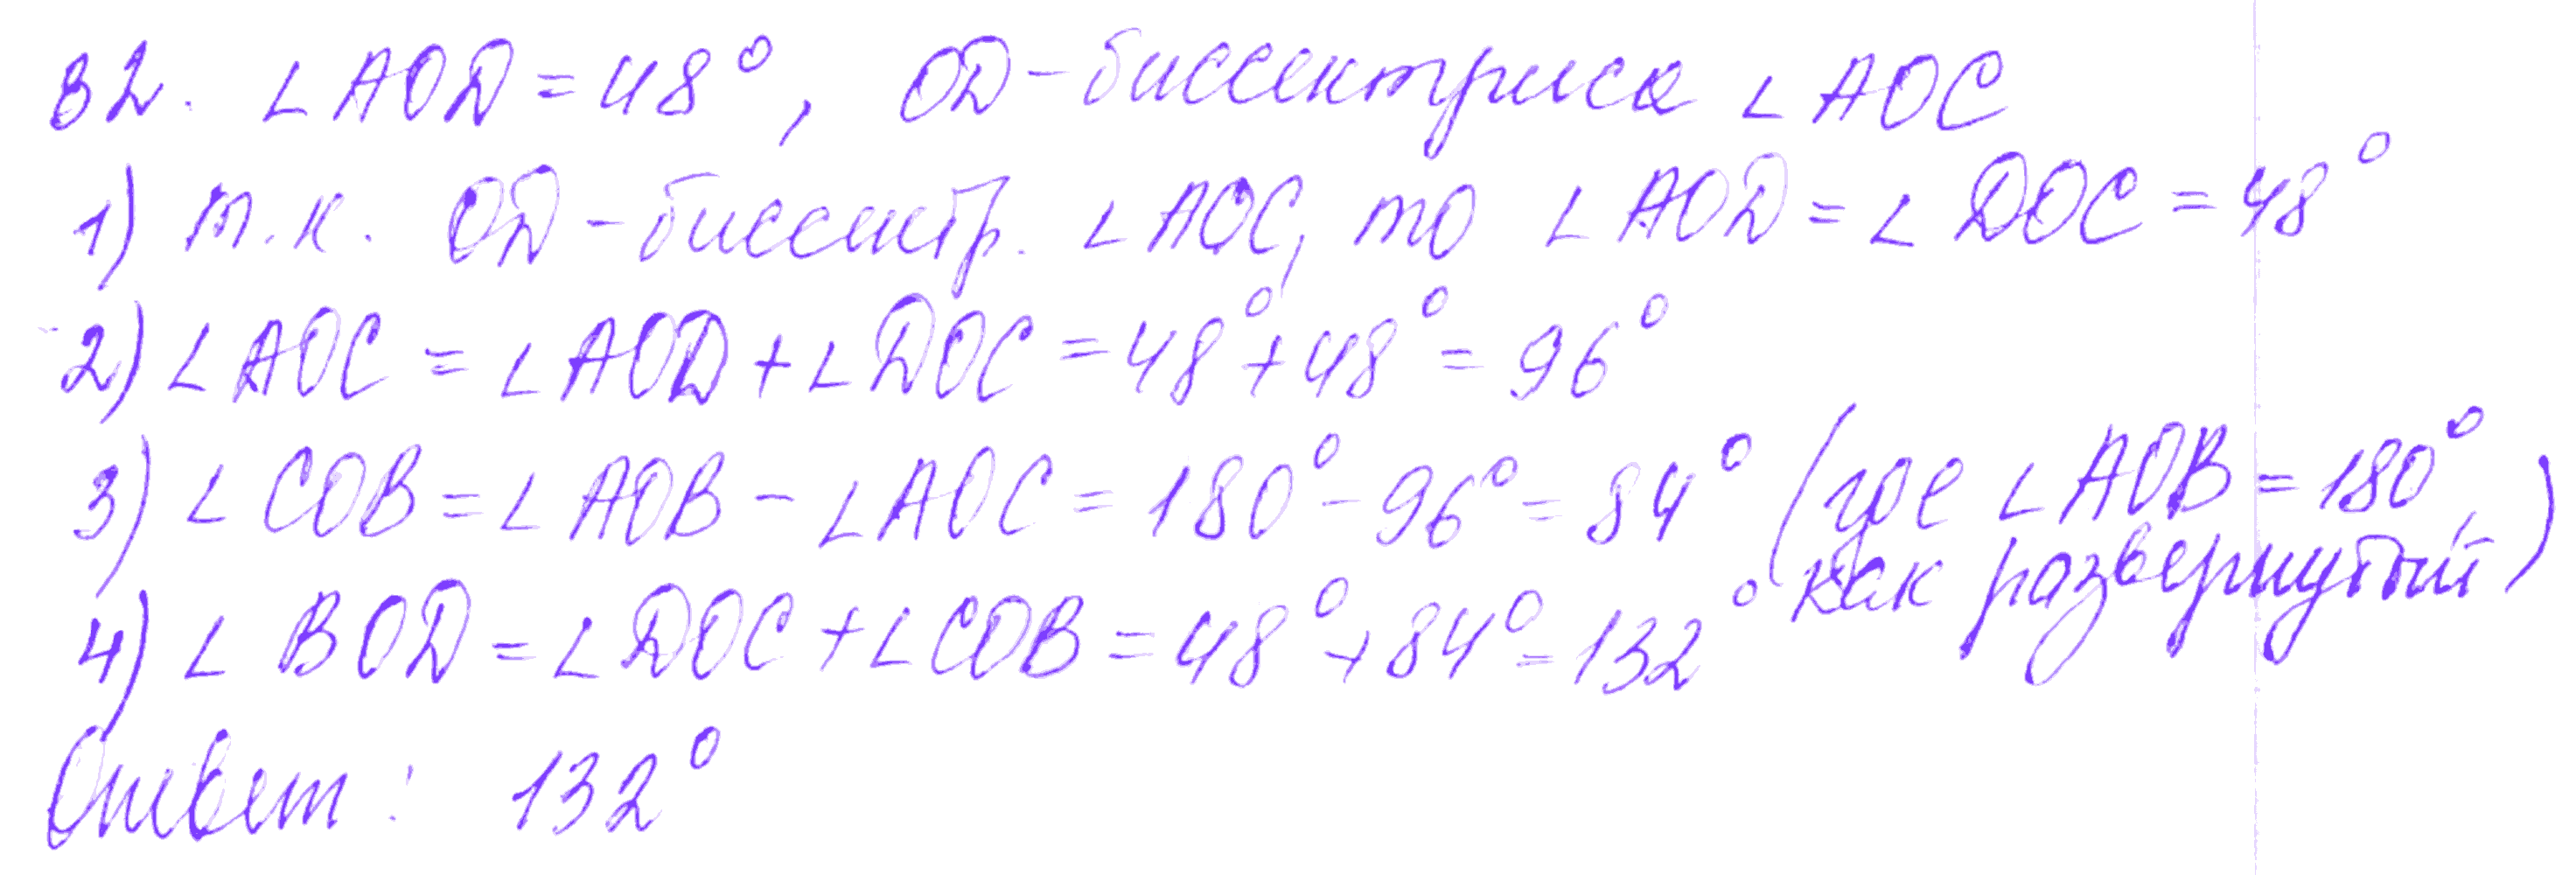 В2. ∠AOD = 48°, OD - биссектриса ∠AOC
1) т.к. OD - биссектр. ∠AOC, то ∠AOD = ∠DOC = 48°
2) ∠AOC = ∠AOD + ∠DOC = 48° + 48° = 96°
3) ∠COB = ∠AOB - ∠AOC = 180° - 96° = 84° (где ∠AOB = 180°,
как развернутый)
4) ∠BOD = ∠DOC + ∠COB = 48° + 84° = 132°
Ответ: 132°